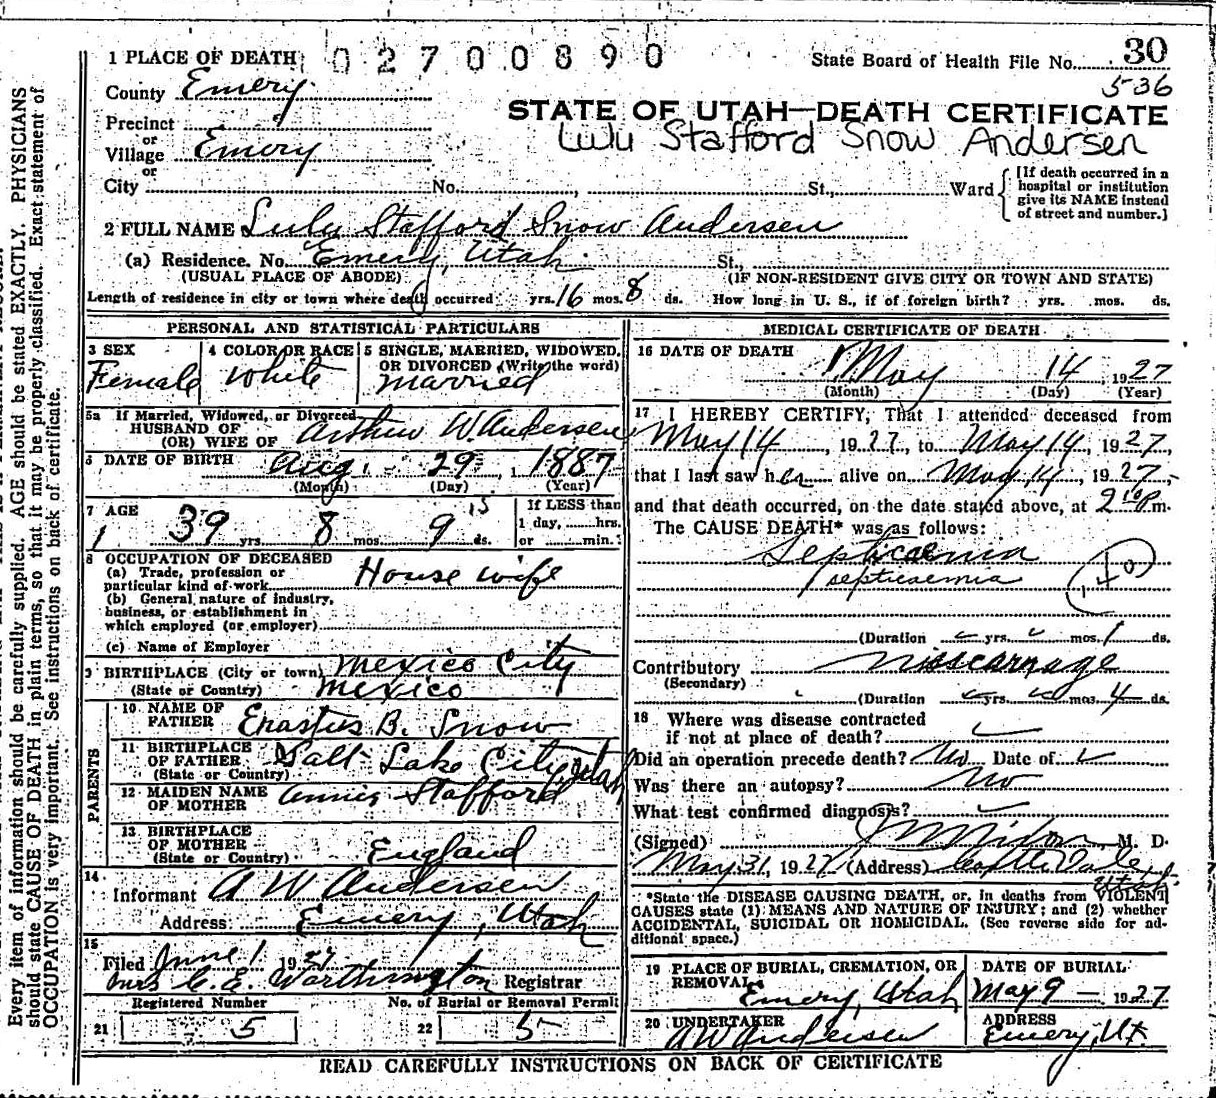 1 PLACE OF DEATH 02700890 State Board of Health File No. 30
County Emery 536
STATE OF UTAH—DEATH CERTIFICATE
Precinct Lulu Stafford Snow Andersen
or
Village Emery
or
City No. , St., Ward
[If death occurred in a
hospital or institution
give its NAME instead
of street and number.]
2 FULL NAME Lulu Stafford Snow Andersen
(a) Residence. No. Emery, Utah St.,
(USUAL PLACE OF ABODE) (IF NON-RESIDENT GIVE CITY OR TOWN AND STATE)
Length of residence in city or town where death occurred yrs. 16 mos. 8 ds. How long in U. S., if of foreign birth? yrs. mos. ds.
PERSONAL AND STATISTICAL PARTICULARS
3 SEX
Female
4 COLOR OR RACE
White
5 SINGLE, MARRIED, WIDOWED,
OR DIVORCED (Write the word)
married
5a If Married, Widowed, or Divorced
HUSBAND OF
(OR) WIFE OF Arthur W. Andersen
6 DATE OF BIRTH Aug. 29, 1887
(Month) (Day) (Year)
7 AGE
39 yrs. 8 mos. 9 15 ds.
If LESS than
1 day, hrs.
or min.
8 OCCUPATION OF DECEASED
(a) Trade, profession or
particular kind of work House wife
(b) General nature of industry,
business, or establishment in
which employed (or employer)
(c) Name of Employer
9 BIRTHPLACE (City or town) Mexico City
(State or Country) Mexico
PARENTS
10 NAME OF
FATHER Erastus B. Snow
11 BIRTHPLACE
OF FATHER Salt Lake City, Utah
(State or Country)
12 MAIDEN NAME
OF MOTHER Annie Stafford
13 BIRTHPLACE
OF MOTHER
(State or Country) England
14
Informant A W Andersen
Address: Emery, Utah
15
Filed June 1 1927
Mrs C. E. Worthington Registrar
Registered Number No. of Burial or Removal Permit
21 5 22 5
MEDICAL CERTIFICATE OF DEATH
16 DATE OF DEATH
May 14, 1927
(Month) (Day) (Year)
17 I HEREBY CERTIFY, That I attended deceased from
May 14, 1927, to May 14, 1927,
that I last saw her alive on May 14, 1927,
and that death occurred, on the date stated above, at 2 10 P.m.
The CAUSE DEATH* was as follows:
Septicaemia
septicaemia
(Duration yrs. mos. 1 ds.
Contributory Misscarriage
(Secondary)
(Duration yrs. mos. 4 ds.
18 Where was disease contracted
if not at place of death?
Did an operation precede death? No Date of
Was there an autopsy? No
What test confirmed diagnosis?
(Signed) M. D.
May 31, 1927 (Address) Castle Dale
Utah
*State the DISEASE CAUSING DEATH, or, in deaths from VIOLENT
CAUSES state (1) MEANS AND NATURE OF INJURY; and (2) whether
ACCIDENTAL, SUICIDAL OR HOMICIDAL. (See reverse side for ad-
ditional space.)
19 PLACE OF BURIAL, CREMATION, OR
REMOVAL
Emery, Utah
DATE OF BURIAL
May 9 — 1927
20 UNDERTAKER
A W Andersen
ADDRESS
Emery, Ut.
READ CAREFULLY INSTRUCTIONS ON BACK OF CERTIFICATE
Every item of information should be carefully supplied. AGE should be stated EXACTLY. PHYSICIANS
should state CAUSE OF DEATH in plain terms, so that it may be properly classified. Exact statement of
OCCUPATION is very important. See instructions on back of certificate.